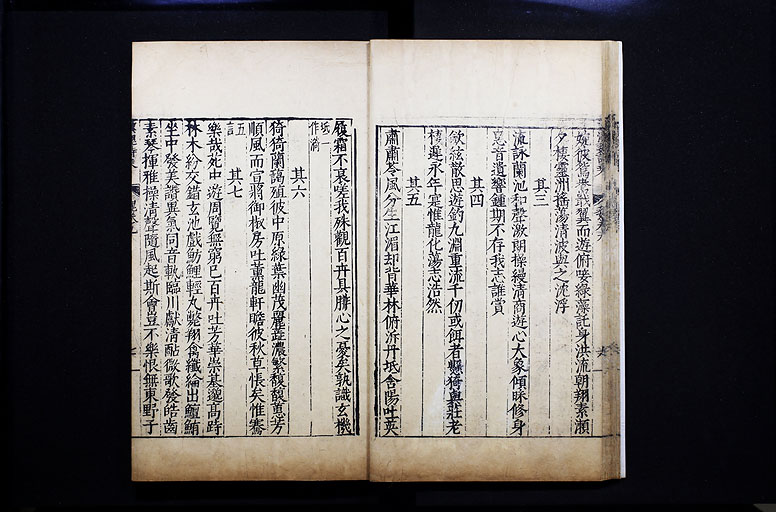 婉彼鴛鴦戢翼而遊俯唼綠藻託身洪流朝翔素瀨
夕棲靈洲搖蕩清波與之沈浮
其三
流詠蘭池和聲激朗操縵清商遊心大象傾昧修身
惠音遺響鍾期不存我志誰賞
其四
斂絃散思遊釣九淵重流千仞或餌者懸猗與莊老
棲遲永年寔惟龍化蕩志浩然
其五
肅肅苓風分生江湄却背華林俯泝丹坻含陽吐英
履霜不衰嗟我殊觀百卉具腓心之憂矣孰識玄機
坻一
作漪
其六
猗猗蘭藹殖彼中原綠葉幽茂麗蕋濃繁馥馥蕙芳
順風而宣將御椒房吐薰龍軒瞻彼秋草悵矣惟騫
五
言
其七
樂哉苑中遊周覽無窮已百卉吐芳華崇基邈高跱
林木紛交錯玄池戲魴鯉輕丸斃翔禽纖綸出鱣鮪
坐中發美讚異氣同音軌臨川獻清酤微歌發皓齒
素琴揮雅操清聲隨風起斯會豈不樂恨無東野子